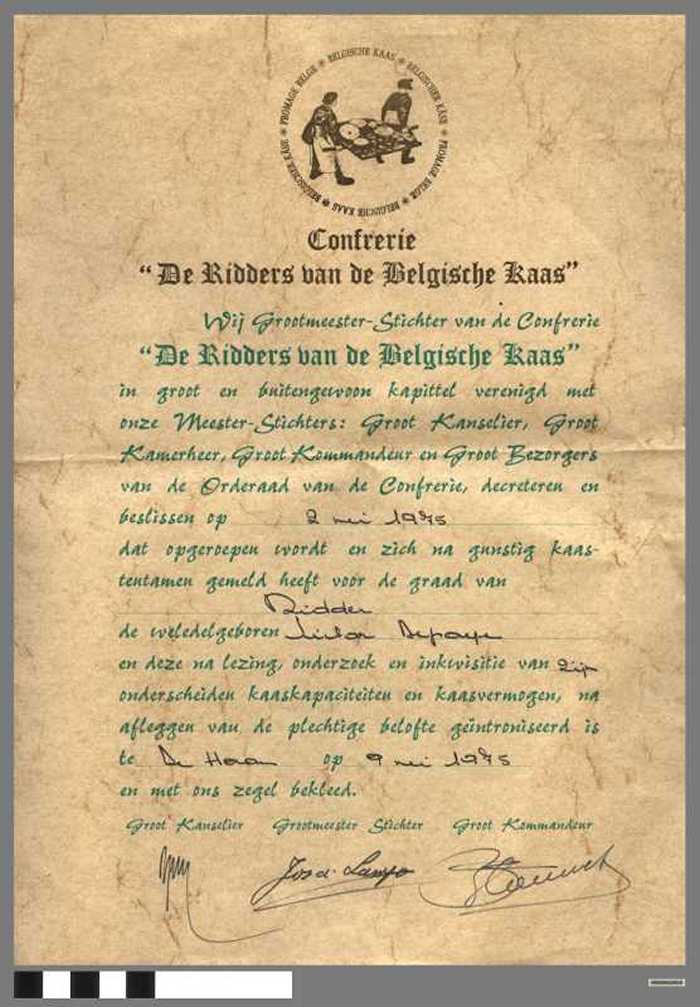 FROMAGE BELGE * BELGISCHE KAAS * BELGISCHER KÄSE * FROMAGE BELGE * BELGISCHE KAAS * BELGISCHER KÄSE *
Confrerie
"De Ridders van de Belgische Kaas"
Wij Grootmeester-Stichter van de Confrerie
"De Ridders van de Belgische Kaas"
in groot en buitengewoon kapittel verenigd met
onze Meester-Stichters: Groot Kanselier, Groot
Kamerheer, Groot Kommandeur en Groot Bezorgers
van de Orderaad van de Confrerie, decreteren en
beslissen op 2 mei 1975
dat opgeroepen wordt en zich na gunstig kaas-
tentamen gemeld heeft voor de graad van
Ridder
de weledelgeboren
en deze na lezing, onderzoek en inkwisitie van zijn
onderscheiden kaaskapaciteiten en kaasvermogen, na
afleggen van de plechtige belofte geïntroniseerd is
te De Haan op 9 mei 1975
en met ons zegel bekleed.
Groot Kanselier Grootmeester Stichter Groot Kommandeur